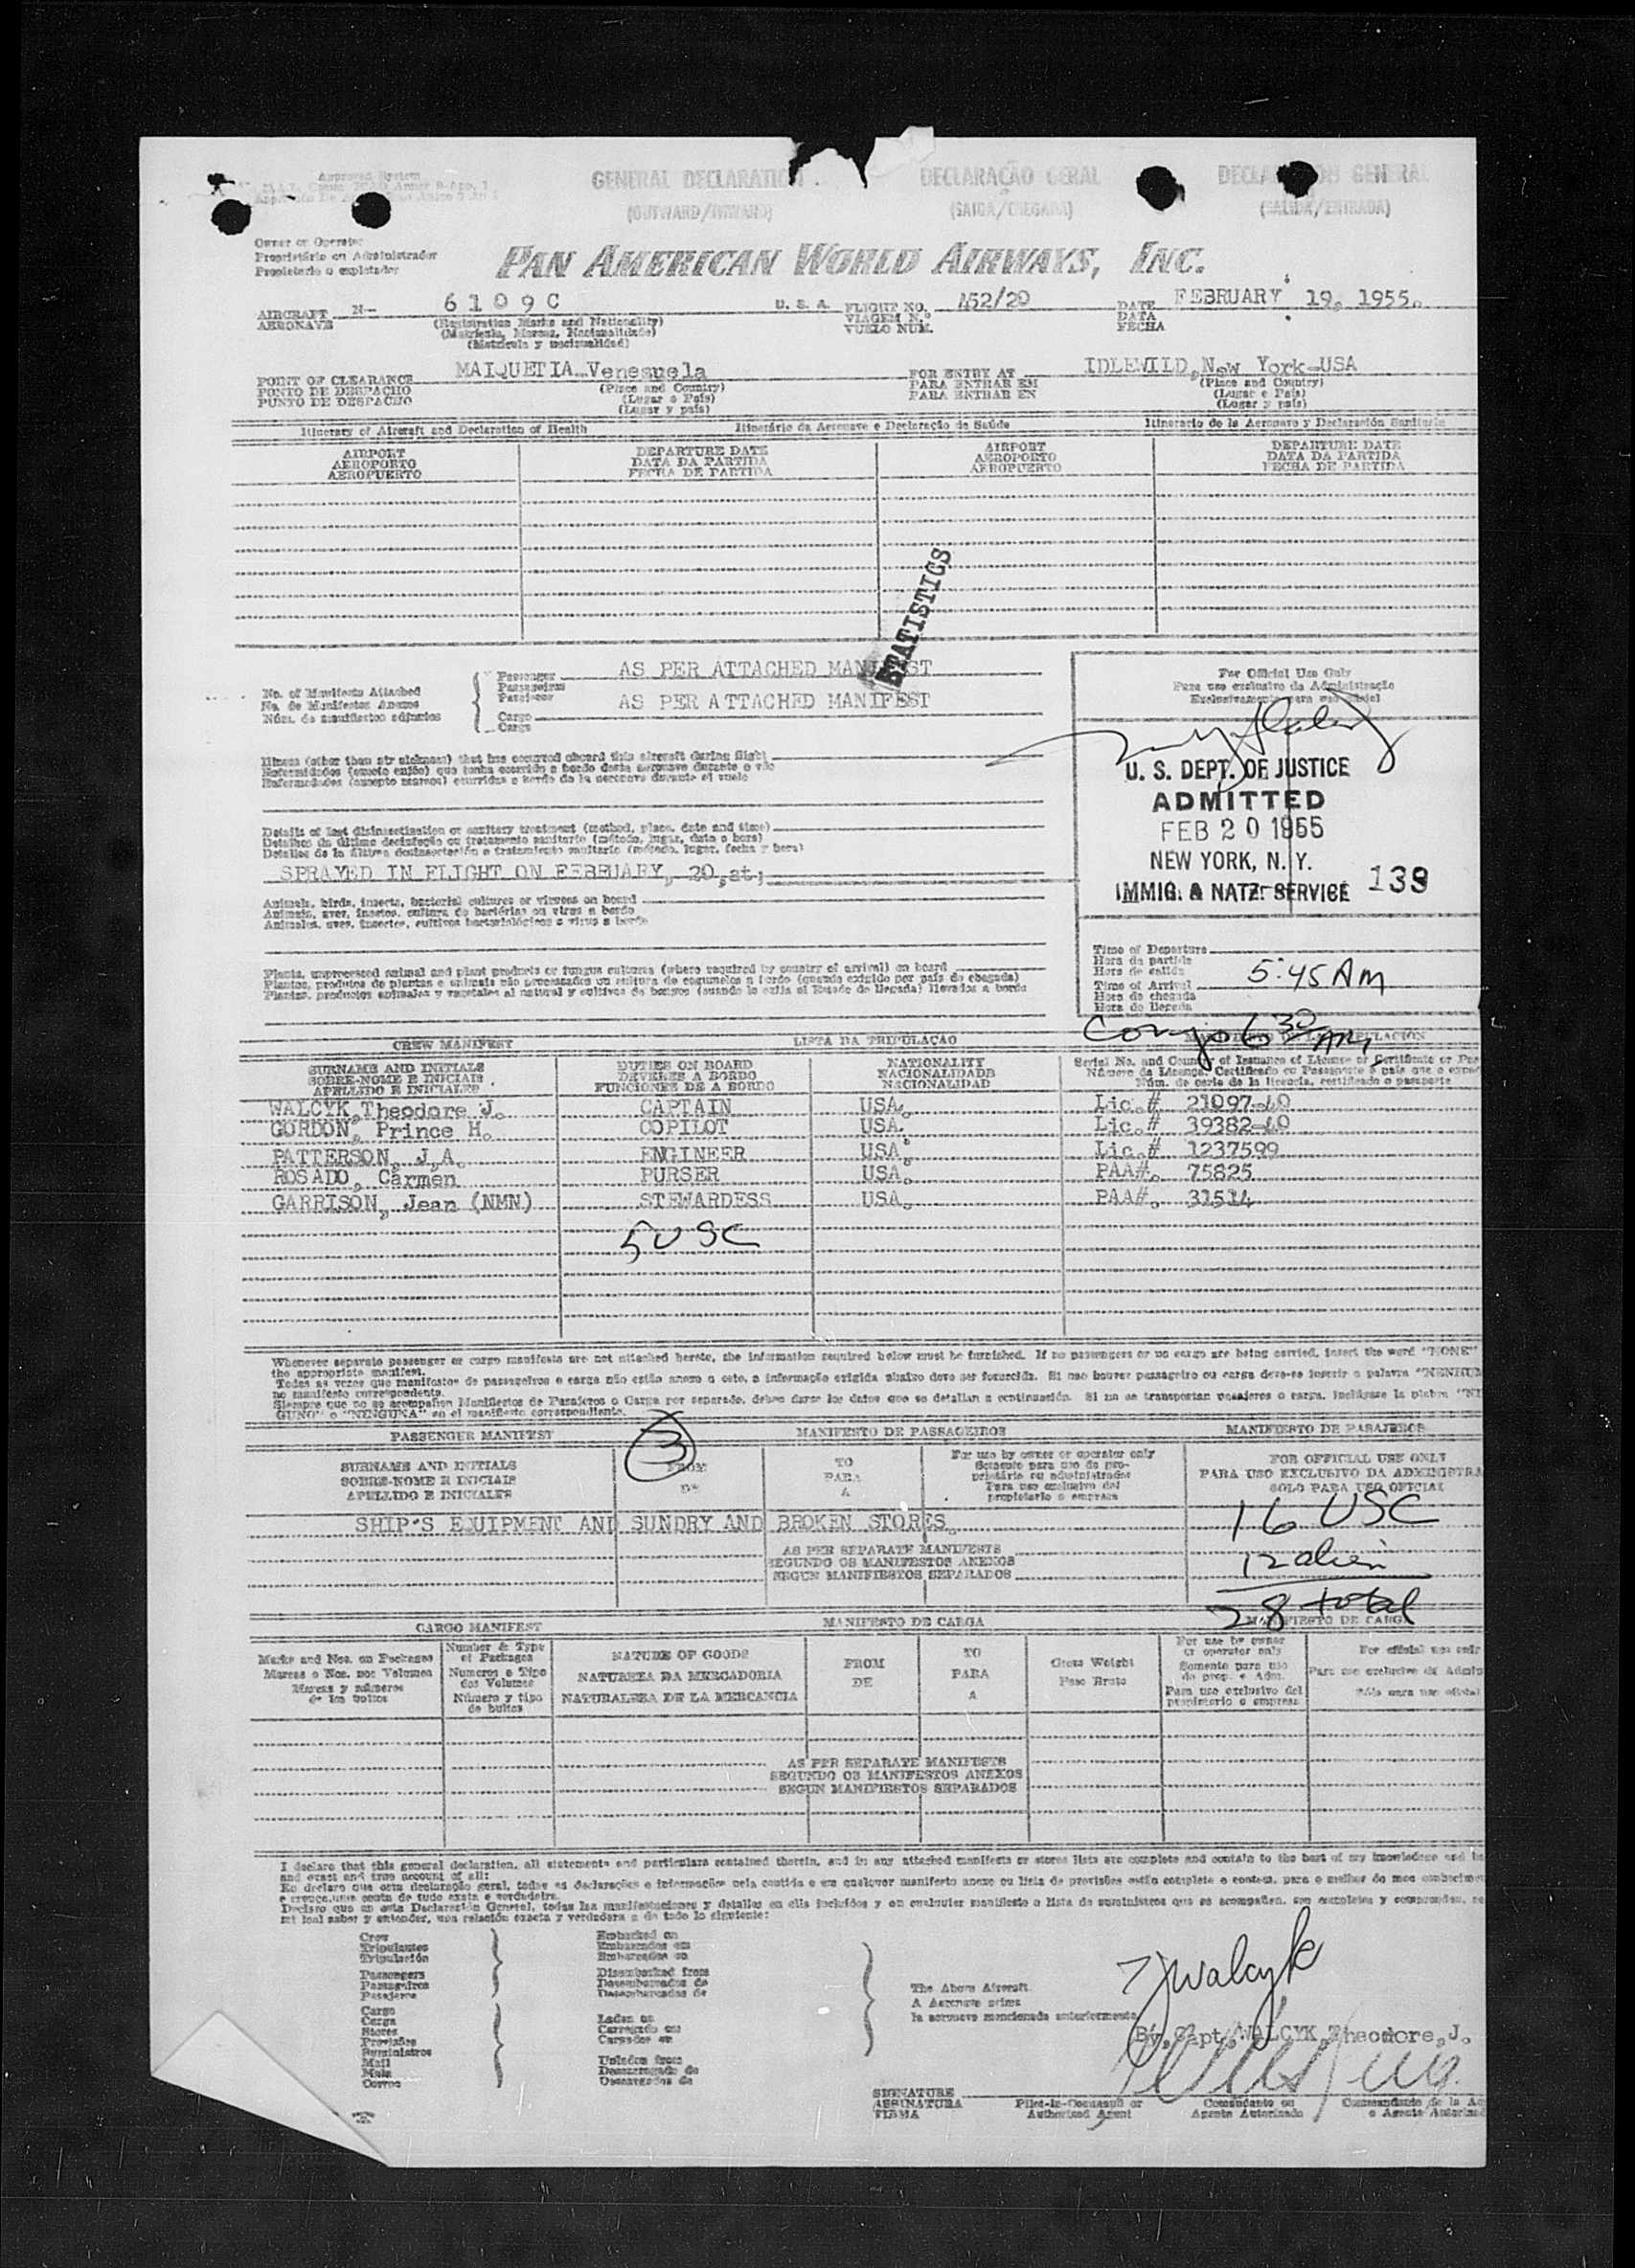 Approved System
GENERAL DECLARATION DECLARAÇÃO GERAL DECLARACION GENERAL
(OUTWARD/INWARD) (SAIDA/CHEGADA) (SALIDA/ENTRADA)
Owner or Operator
Proprietário ou Administrador
Propietario o explotador
PAN AMERICAN WORLD AIRWAYS, INC.
AIRCRAFT N- 6109C U. S. A. FLIGHT NO. 452/20 DATE FEBRUARY 19, 1955.
AERONAVE (Registration Marks and Nationality) VIAGEM N.º DATA
(Matricula, Marcas, Nacionalidade) VUELO NUM. FECHA
(Matrícula y nacionalidad)
POINT OF CLEARANCE MAIQUETIA Venesuela FOR ENTRY AT IDLEWILD, New York-USA
PONTO DE DESPACHO (Place and Country) PARA ENTRAR EM (Place and Country)
PUNTO DE DESPACHO (Lugar e País) PARA ENTRAR EN (Lugar e País)
(Lugar y país) (Lugar y país)
Itinerary of Aircraft and Declaration of Health Itinerário da Aeronave e Declaração de Saúde Itinerario de la Aeronave y Declaración Sanitaria
AIRPORT DEPARTURE DATE AIRPORT DEPARTURE DATE
AEROPORTO DATA DA PARTIDA AEROPORTO DATA DA PARTIDA
AEROPUERTO FECHA DE PARTIDA AEROPUERTO FECHA DE PARTIDA
STATISTICS
No. of Manifests Attached
No. de Manifestos Anexos
Núm. de manifiestos adjuntos
Passenger AS PER ATTACHED MANIFEST
Passageiros
Pasajeros AS PER ATTACHED MANIFEST
Cargo
Carga
For Official Use Only
Para uso exclusivo da Administração
Exclusivamente para uso oficial
U. S. DEPT. OF JUSTICE
ADMITTED
FEB 20 1955
NEW YORK, N. Y.
IMMIG. & NATZ. SERVICE 139
Illness (other than air sickness) that has occurred aboard this aircraft during flight
Enfermidades (exceto enjôo) que tenha ocorrido a bordo desta aeronave durante o vôo
Enfermedades (excepto mareos) ocurridas a bordo de la aeronave durante el vuelo
Details of last disinsectization or sanitary treatment (method, place, date and time)
Detalhes da última desinfeção ou tratamento sanitario (método, lugar, data e hora)
Detalles de la última desinsectación o tratamiento sanitario (método, lugar, fecha y hora)
SPRAYED IN FLIGHT ON FEBRUARY, 20, at;
Animals, birds, insects, bacterial cultures or viruses on board
Animais, aves, insetos, cultura de bactérias ou virus a bordo
Animales, aves, insectos, cultivos bacteriológicos o virus a bordo
Plants, unprocessed animal and plant products or fungus cultures (where required by country of arrival) on board
Plantas, produtos de plantas e animais não processados ou cultura de cogumelos a bordo (quando exigido por país de chegada)
Plantas, productos animales y vegetales al natural y cultivos de hongos (cuando lo exija el Estado de llegada) llevados a bordo
Time of Departure
Hora da partida
Hora de salida
Time of Arrival 5:45 AM
Hora de chegada
Hora de llegada
6 30 AM
CREW MANIFEST LISTA DA TRIPULAÇAO
SURNAME AND INITIALS DUTIES ON BOARD NATIONALITY Serial No. and Country of Issuance of License or Certificate or
SOBRE-NOME E INICIAIS DEVERES A BORDO NACIONALIDADE Número da Licença, Certificado ou Passaporte e país que o
APELLIDO E INICIALES FUNCIONES DE A BORDO NACIONALIDAD Núm. de serie de la licencia, certificado o pasaporte
WALCYK, Theodore J. CAPTAIN USA. Lic.# 21097-40
GORDON, Prince H. COPILOT USA. Lic.# 39382-40
PATTERSON, J.A. ENGINEER USA. Lic.# 1237599
ROSADO, Carmen PURSER USA. PAA#. 75825
GARRISON, Jean (NMN) STEWARDESS USA. PAA#. 31514
5 USC
Whenever separate passenger or cargo manifests are not attached hereto, the information required below must be furnished. If no passengers or no cargo are being carried, insert the word "NONE"
the appropriate manifest.
Todas as vezes que manifestos de passageiros e carga não estão anexo a este, a informação exigida abaixo deve ser fornecida. Si nao houver passageiro ou carga deve-se inserir a palavra
no manifesto correspondente.
Siempre que no se acompañen Manifiestos de Pasajeros o Carga por separado, deben darse los datos que se detallan a continuación. Si no se transportan pasajeros o carga, inclúyase la
GUNO" o "NINGUNA" en el manifiesto correspondiente.
PASSENGER MANIFEST 3 MANIFESTO DE PASSAGEIROS MANIFIESTO DE PASAJEROS
SURNAME AND INITIALS FROM TO For use by owner or operator only FOR OFFICIAL USE ONLY
SOBRE-NOME E INICIAIS DE PARA Somente para uso do proprietário ou administrador PARA USO EXCLUSIVO DA ADMINISTRA
APELLIDO E INICIALES A Para uso exclusivo del propietario o empresa SOLO PARA USO OFICIAL
SHIP'S EQUIPMENT AND SUNDRY AND BROKEN STORES. 16 USC
AS PER SEPARATE MANIFESTS 12 alien
SEGUNDO OS MANIFESTOS ANEXOS
SEGUN MANIFIESTOS SEPARADOS 28 total
CARGO MANIFEST MANIFESTO DE CARGA MANIFIESTO DE CARGA
Marks and Nos. on Packages Number & Type of Packages NATURE OF GOODS FROM TO Gross Weight For use by owner or operator only For official use only
Marcas e Nos. nos Volumes Numeros e Tipo dos Volumes NATUREZA DA MERCADORIA DE PARA Peso Bruto Somente para uso do prop. e Adm. Para uso exclusivo da
Marcas y números de los bultos Número y tipo de bultos NATURALEZA DE LA MERCANCIA A Para uso exclusivo del propietario o empresa Sólo para uso oficial
AS PER SEPARATE MANIFESTS
SEGUNDO OS MANIFESTOS ANEXOS
SEGUN MANIFIESTOS SEPARADOS
I declare that this general declaration, all statements and particulars contained therein, and in any attached manifests or stores lists are complete and contain to the best of my knowledge and
and exact and true account of all:
Eu declaro que esta declaração geral, todas as declarações e informações nela contida e em qualquer manifesto anexo ou lista de provisões estão completa e contem, para o melhor do meu
Declaro que en esta Declaración General, todas las manifestaciones y detalles en ella incluídos y en cualquier manifiesto o lista de suministros que se acompañen, son completos y comprenden,
mi leal saber y entender, una relación exacta y verdadera de todo lo siguiente:
Crew
Tripulantes
Tripulación
Passengers
Passageiros
Pasajeros
Cargo
Carga
Stores
Provisões
Suministros
Mail
Mala
Correo
Embarked on
Embarcados em
Embarcados en
Disembarked from
Desembarcados de
Desembarcados de
Laden on
Carregado em
Cargados en
Unladen from
Descarregado de
Descargados de
The Above Aircraft
A Aeronave acima
la aeronave mencionada anteriormente
TJWalcyk
By, Capt. WALCYK, Theodore, J.
SIGNATURE
ASSINATURA
FIRMA
Pilot-in-Command or Authorized Agent
Comandante ou Agente Autorizado
Commandante de la
o Agente